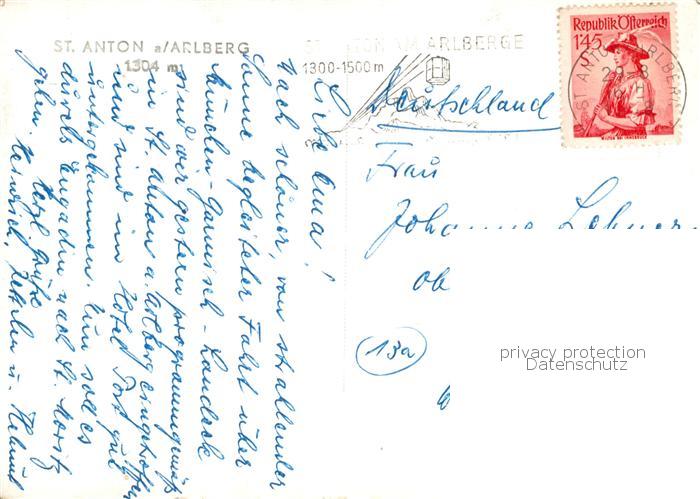 ST. ANTON a/ARLBERG
1304 m
ST. ANTON AM ARLBERGE
1300-1500 m
Republik Österreich
145
ST. ANTON ARLBERG
Liebe Oma!
Nach schöner, von strahlender
Sonne begleiteter Fahrt über
München-Garmisch-Landeck
sind wir gestern programmgemäß
in St. Anton a. Arlberg eingetroffen
und sind im Hotel Post gut
untergekommen. Nun soll es
durchs Engadin nach St. Moritz
gehen. Herzl. Grüße
Heinrich, u. Helmut
Deutschland
Frau
Johanne Lehner
Ob
13a
privacy protection
Datenschutz